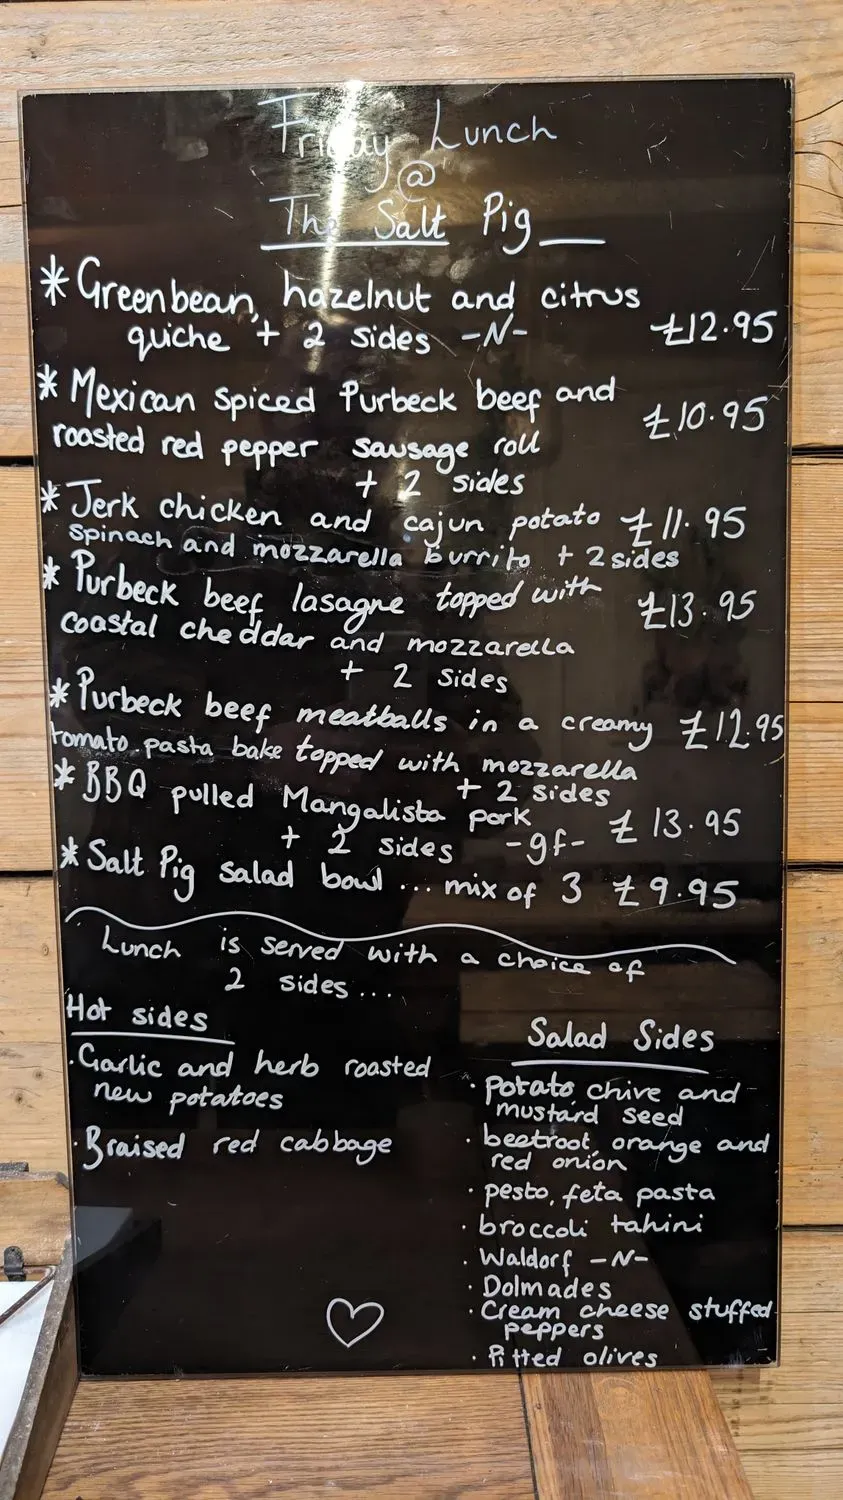 Friday Lunch
@
The Salt Pig
* Greenbean, hazelnut and citrus
quiche + 2 sides -N- £12.95
* Mexican Spiced Purbeck beef and
roasted red pepper sausage roll £10.95
+ 2 sides
* Jerk chicken and cajun potato £11.95
spinach and mozzarella burrito + 2 sides
* Purbeck beef lasagne topped with £13.95
coastal cheddar and mozzarella
+ 2 sides
* Purbeck beef meatballs in a creamy £12.95
tomato pasta bake topped with mozzarella
+ 2 sides
* BBQ pulled Mangalista pork
+ 2 sides -gf- £13.95
* Salt Pig salad bowl ... mix of 3 £9.95
Lunch is served with a choice of
2 sides...
Hot sides
· Garlic and herb roasted
new potatoes
· Braised red cabbage
Salad Sides
· potato, chive and
mustard seed
· beetroot, orange and
red onion
· pesto, feta pasta
· broccoli tahini
· Waldorf -N-
· Dolmades
· Cream cheese stuffed
peppers
· Pitted olives